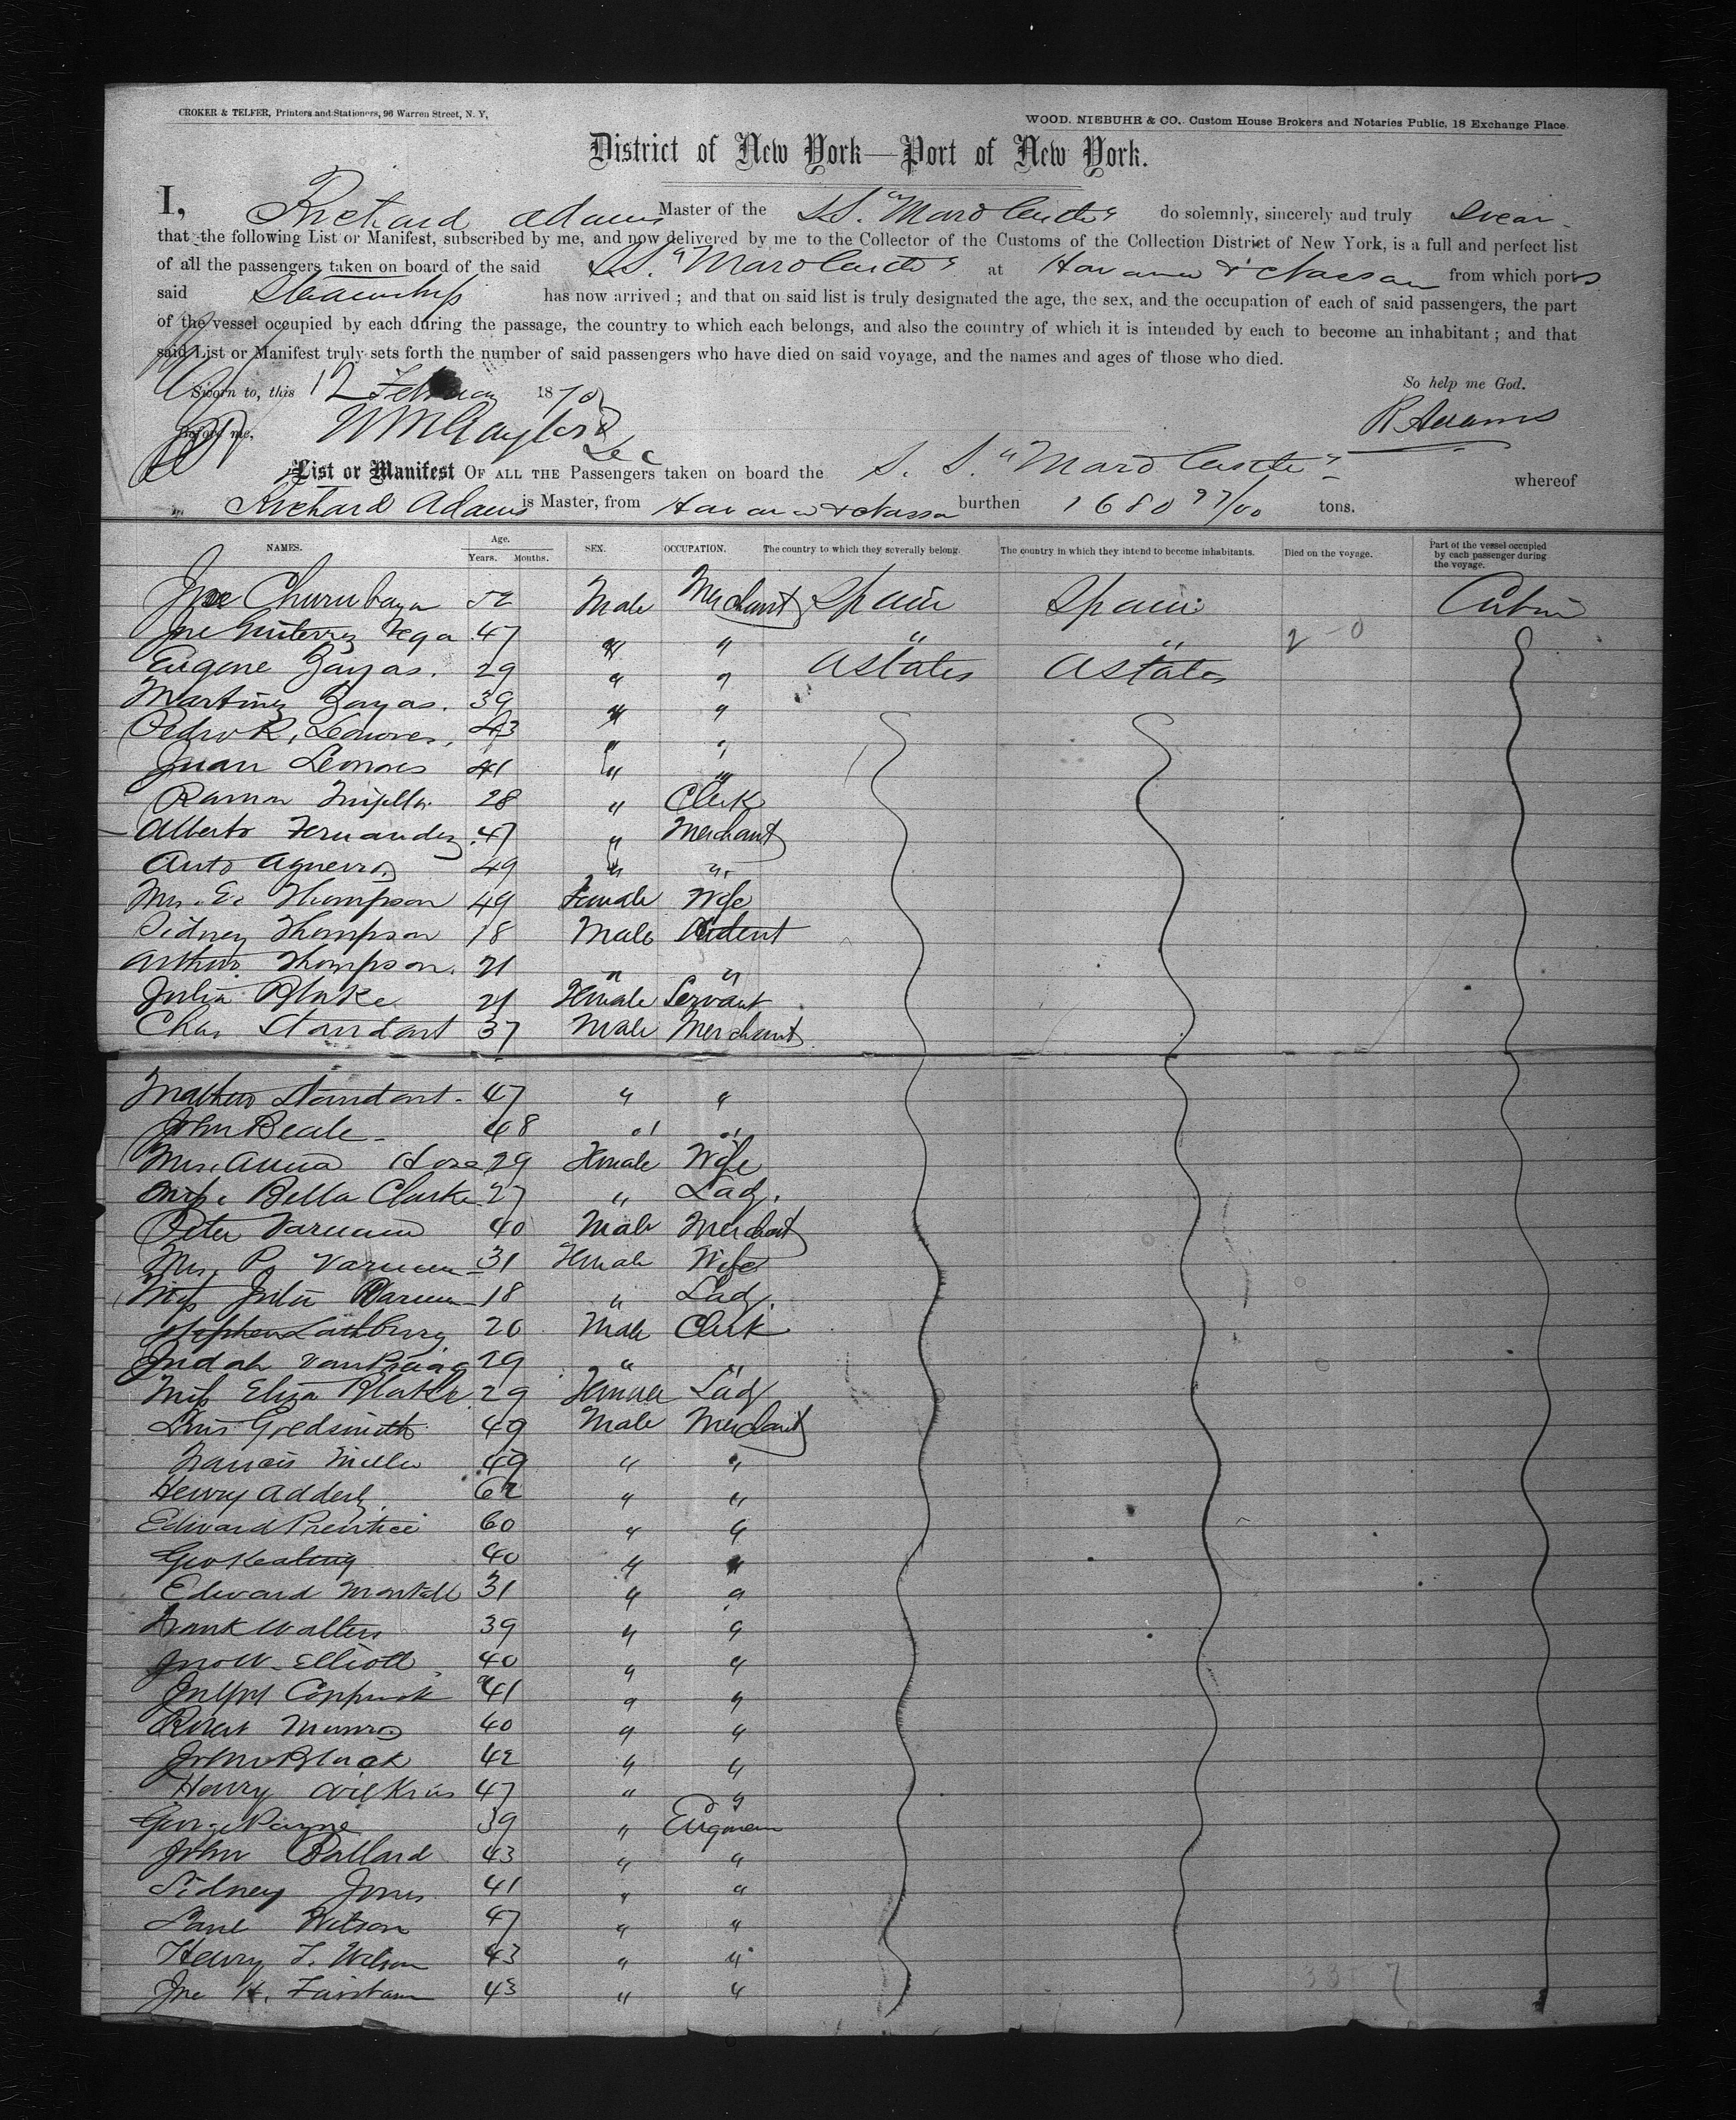 CROKER & TELFER, Printers and Stationers, 96 Warren Street, N. Y.
WOOD, NIEBUHR & CO. Custom House Brokers and Notaries Public, 18 Exchange Place.
District of New York—Port of New York.
I, Richard Adams Master of the S.S. "Moro Castle" do solemnly, sincerely and truly Swear
that the following List or Manifest, subscribed by me, and now delivered by me to the Collector of the Customs of the Collection District of New York, is a full and perfect list
of all the passengers taken on board of the said S.S. "Moro Castle" at Havana & Nassau from which ports
said Steamship has now arrived ; and that on said list is truly designated the age, the sex, and the occupation of each of said passengers, the part
of the vessel occupied by each during the passage, the country to which each belongs, and also the country of which it is intended by each to become an inhabitant ; and that
said List or Manifest truly sets forth the number of said passengers who have died on said voyage, and the names and ages of those who died.
Sworn to, this 12 February 1870 So help me God.
Before me, R Adams
List or Manifest OF ALL THE Passengers taken on board the S. S. "Moro Castle" whereof
Richard Adams is Master, from Havana & Nassau burthen 1680 97/100 tons.
NAMES. Age. Years. Months. SEX. OCCUPATION. The country to which they severally belong. The country in which they intend to become inhabitants. Died on the voyage. Part of the vessel occupied by each passenger during the voyage.
52 Male Merchant Spain Spain Cabin
Vega 47 " " " "
Eugene Zayas. 29 " " States States
Martinez Zayas. 39 " "
Pedro R. 43 " "
Juan 41 " "
Ramon 28 " Clerk
Alberto Fernandez 47 " Merchant
Anto Aguerro 49 " "
Mrs. E. Thompson 49 Female Wife
Sidney Thompson 18 Male Student
Arthur Thompson. 21 " "
Julia Blake 21 Female Servant
Chas Standart 37 Male Merchant
Mathew Standart 47 " "
John Beale 48 " "
Mrs. Anna 29 Female Wife
Miss Bella Clarke 27 " Lady.
Peter Varnum 40 Male Merchant
Mrs. P. Varnum 31 Female Wife
Miss Julia Varnum 18 " Lady.
Stephen Lathbury 20 Male Clerk
Judah Van Praag 29 " "
Miss Eliza Blake 29 Female Lady
Louis Goldsmith 49 Male Merchant
Francis Miller 49 " "
Henry Adderly 62 " "
Edward Prentice 60 " "
Geo Keating 40 " "
Edward Montell 31 " "
Frank Walters 39 " "
Jno W. Elliott 40 " "
41 " "
Robert Munro 40 " "
John Black 42 " "
Henry Wilkins 47 " "
George Payne 39 "
John Ballard 43 " "
Sidney Jones 41 " "
Wilson 47 " "
Henry T. Wilson 43 " "
Jno H. 43 " "